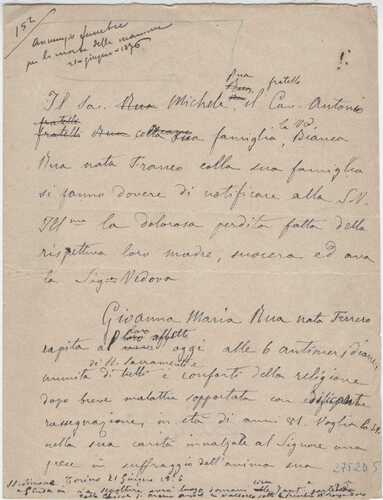 152
Annunzio funebre
per la morte della mamma
21 giugno - 1876
Rua fratello
Il Sac. Rua Michele, il Cav. Antonio
fratello Rua colla sua famiglia, la Va. Bianca
Rua nata Franco colla sua famiglia
si fanno dovere di notificare alla S.V.
Ill.ma la dolorosa perdita fatta della
rispettiva loro madre, suocera ed ava
la Sig.ra Vedova
Giovanna Maria Rua nata Ferrero
rapita ai loro affetti oggi alle 6 antimer.
di SS. Sacramenti e
munita di tutti i conforti della religione
dopo breve malattia sopportata con edificante
rassegnazione, in età di anni 81. Voglia la S.V.
nella sua carità innalzar al Signore una
prece in suffraggio dell'anima sua
Torino 21 Giugno 1876
275205